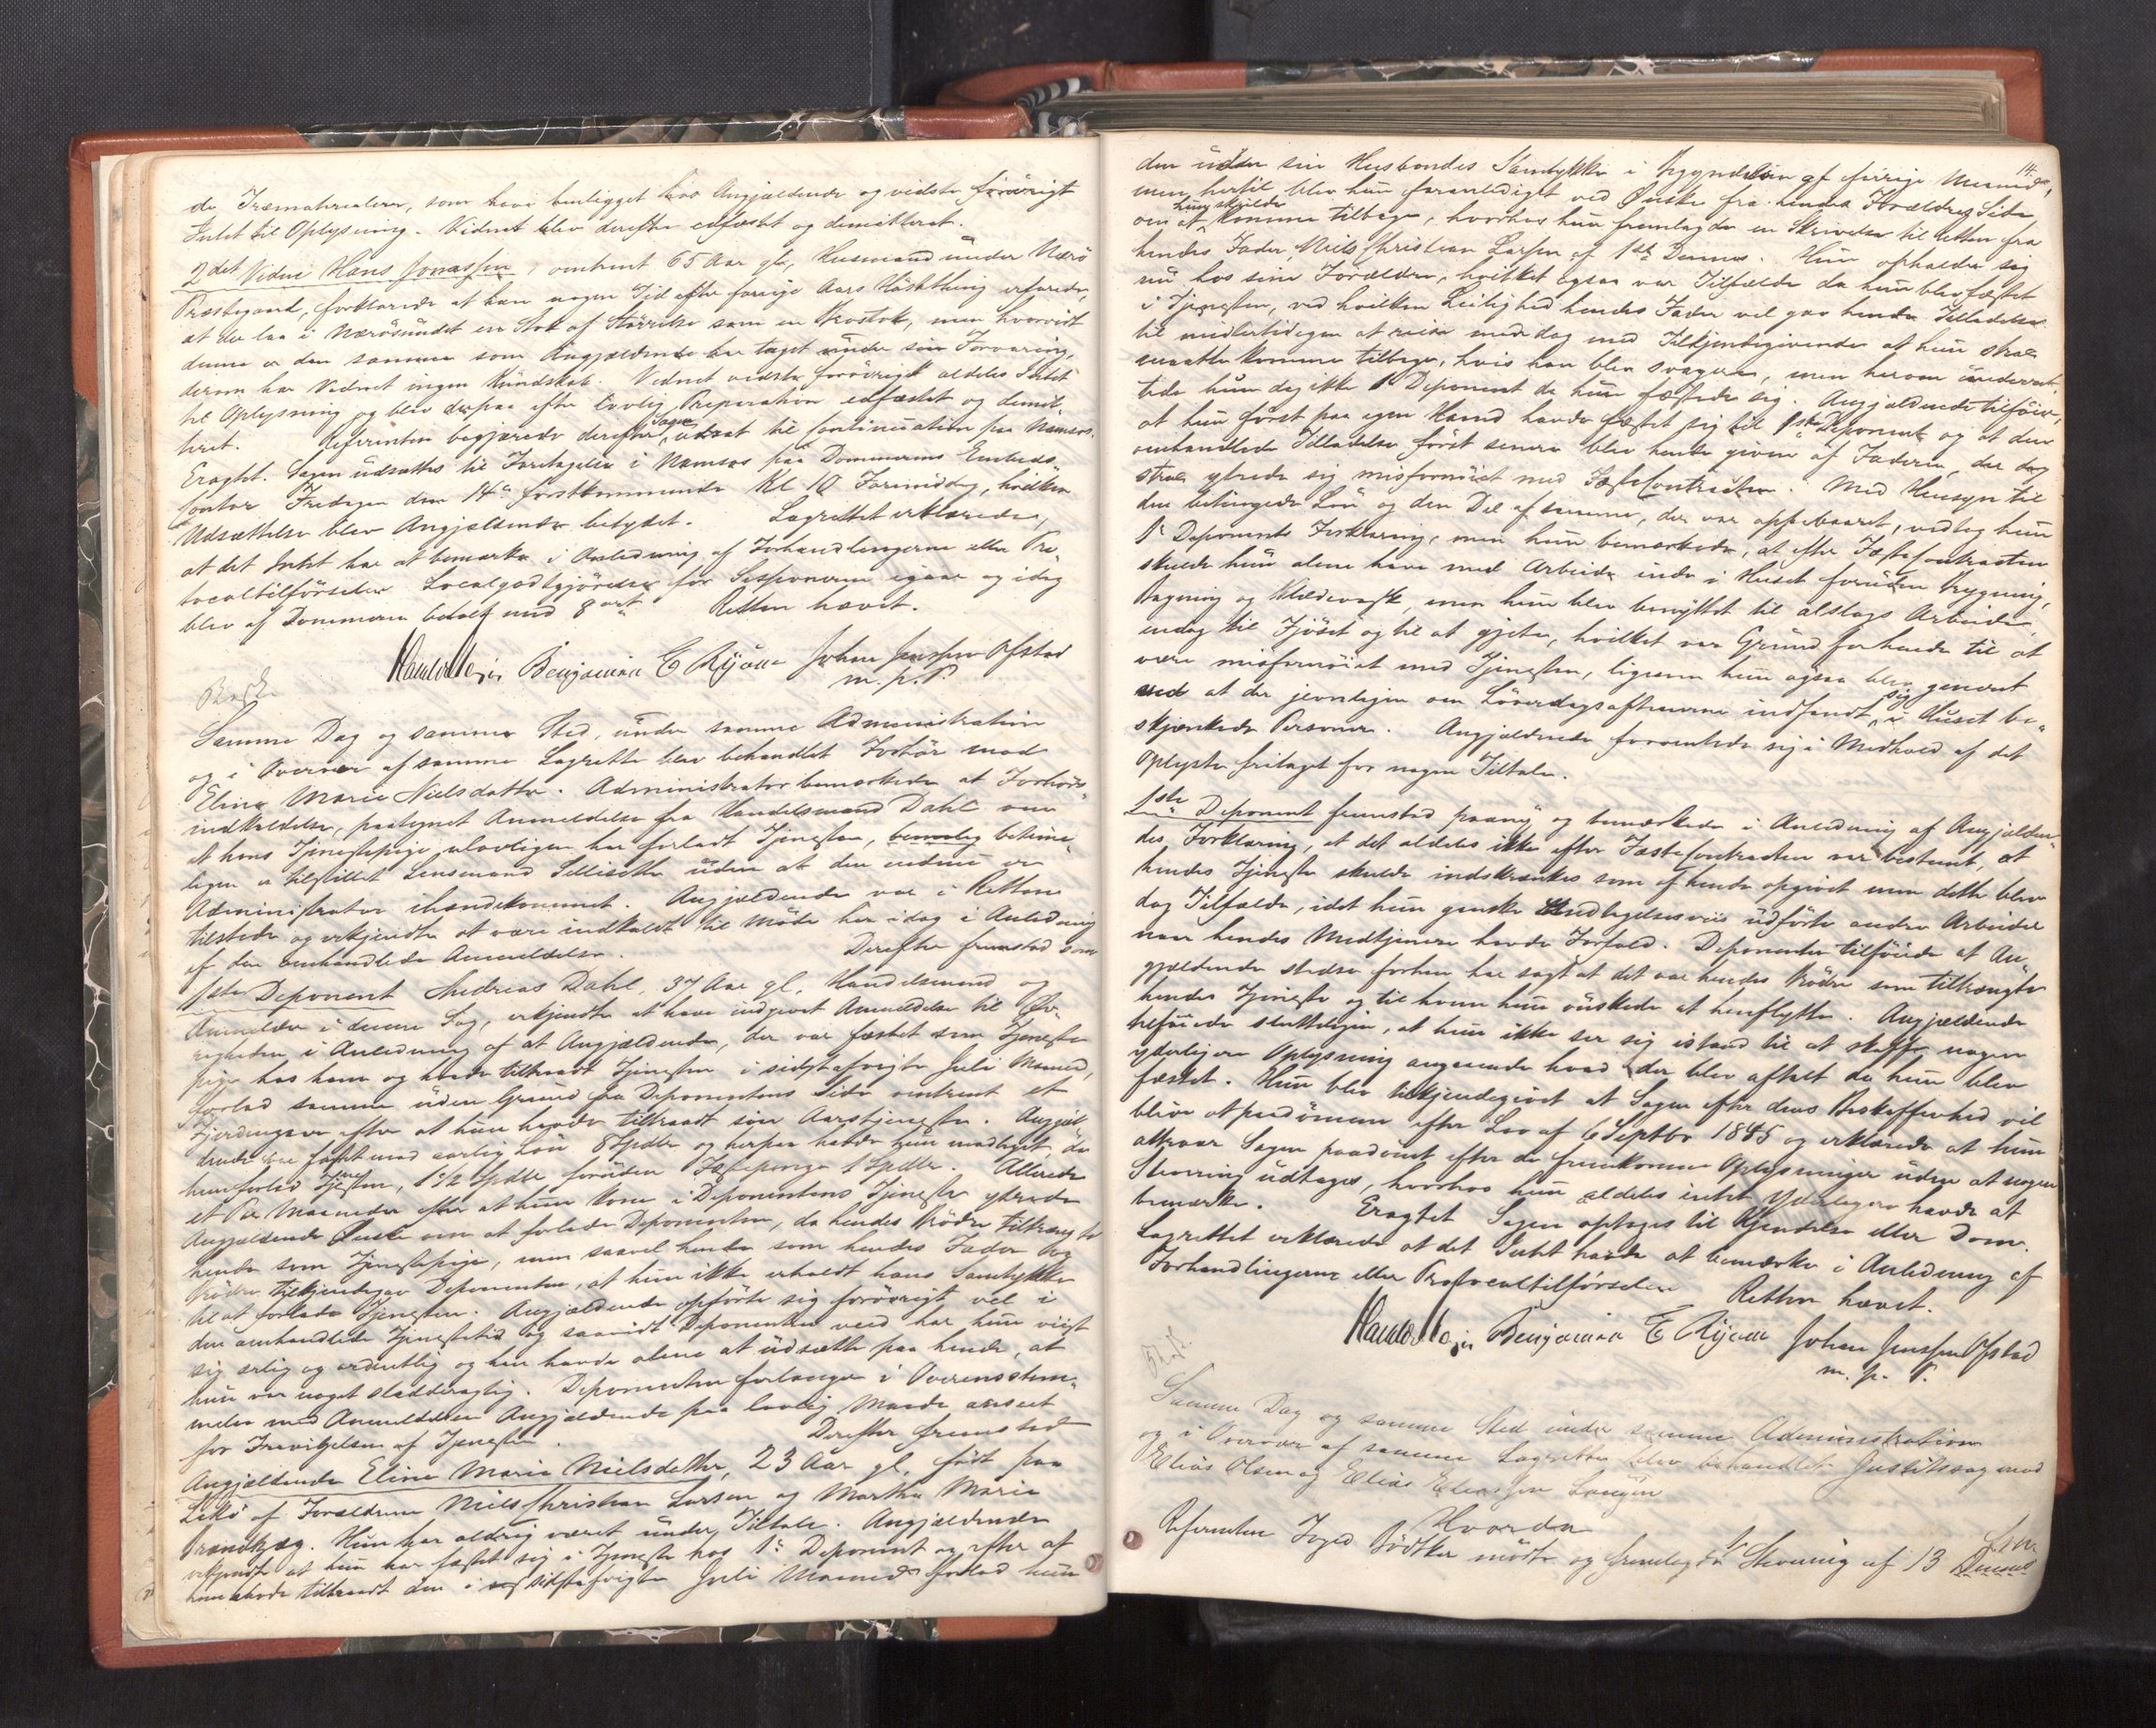 de Træmaterialer, som have beligget hos Angjældende og vidste forövrigt
Intet til Oplysning. Vidnet blev derefter edfæstet og demitteret.
2det Vidne Hans Jonassen, omtrent 65 Aar gl., Husmand under Nærö
Præstegaard, forklarede at han nogen Tid efter forrige Aars Hösthing erfarede,
at der laa i Nærösundet en Stok af Störrelse som en Kostok, men hvorvidt
denne er den samme som Angjældende har taget under sin Forvaring,
derom har Vidnet ingen Kundskab. Vidnet vidste forövrigt aldeles Intet
til Oplysning og blev derpaa efter lovlig Præparation edfæstet og demit-
teret. Referenten begjærede derefter Sagen udsat til Continuation paa Namsos.
Eragtet. Sagen udsættes til Foretagelse i Namsos paa Dommerens Embeds-
contor Fredagen den 14de förstkommende Kl 10 Formiddag, hvilken
Udsættelse blev Angjældende betydet. Lagrettet erklærede,
at det Intet har at bemærke i Anledning af Forhandlingerne eller Pro-
tocoltilförselen. Localgodtgjörelse for Sessionerne igaar og idag
blev af Dommeren betalt med 8 ort. Retten hævet.
Benjamin E Ryjom Johan Jensen Ofstad
m. p. P.
Samme Dag og samme Sted, under samme Administration
og i Overvær af samme Lagrette blev behandlet Forhör mod
Eline Marie Nielsdatter. Administrator bemærkede at Forhörs-
indkaldelse, paategnet Anmeldelse fra Handelsmand Dahl om
at hans Tjenestepige ulovligen har forladt Tjenesten, betime-
ligen er tilstillet Lensmand Sellisæth uden at den endnu er
Administrator ihændekommet. Angjældende var i Retten
tilstede og erkjendte at være indkaldt til Möde her idag i Anledning
af den omhandlede Anmeldelse. Derefter fremstod som
1ste Deponent Andreas Dahl, 37 Aar gl. Handelsmand og
Anmelder i denne Sag, erkjendte at have indgivet Anmeldelse til Öv-
righeden i Anledning af at Angjældende, der var fæstet som Tjeneste-
pige hos ham og havde tiltraadt Tjenesten i sidstafvigte Juli Maaned,
forlod samme uden Grund fra Deponentens Side omtrent et
Fjerdingaar efter at hun havde tiltraadt sin Aarstjeneste. Angjæl-
dende var fæstet mod aarlig Lön 8 Spdlr og herpaa havde hun modtaget, da
hun forlod Tjenesten, 1 1/2 Spdlr foruden Fæstepenge 1 Spdlr. Allerede
et Par Maaneder efter at hun kom i Deponentens Tjeneste yttrede
Angjældende Önske om at forlade Deponenten, da hendes Brödre tiltrængte
hende som Tjenestepige, men saavel hende som hendes Fader og
Brödre tilkjendegav Deponenten, at hun ikke erholdt hans Samtykke
til at forlade Tjenesten. Angjældende opförte sig forövrigt vel i
den omhandlede Tjenestetid og saavidt Deponenten veed har hun viist
sig ærlig og ordentlig og han havde alene at udsætte paa hende, at
hun var noget sladderagtig. Deponenten forlanger i Overensstem-
melse med Anmeldelsen Angjældende paa lovlig Maade anseet
for Fravigelsen af Tjenesten. Derefter fremstod
Angjældende Eline Marie Nielsdatter, 23 Aar gl. födt paa
Lekö af Forældrene Niels Christian Larsen og Martha Marie
. Hun har aldrig været under Tiltale. Angjældende
erkjendte at hun har fæstet sig i Tjeneste hos 1ste Deponent og efter at
hun havde tiltraadt den i sidstafvigte Juli Maaned forlod hun
14.
den uden sin Husbondes Samtykke i Begyndelsen af forrige Maaned,
men hertil blev hun foranlediget ved Önske fra hendes Forældres Side
om at hun skulde komme tilbage, hvorhos hun fremlagde en Skrivelse til Retten fra
hendes Fader, Niels Christian Larsen af 1ste Dennes. Hun opholder sig
nu hos sine Forældre, hvilket ogsaa var Tilfælde da hun blev fæstet
i Tjenesten, ved hvilken Leilighed hendes Fader vel gav hende Tilladelse
til midlertidigen at reise med dog med Tilkjendegivende at hun strax
maatte komme tilbage, hvis han blev svagere, men herom underret-
tede hun dog ikke 1 Deponent da hun fæstede sig. Angjældende tilföiede,
at hun först paa egen Haand havde fæstet sig til 1ste Deponent og at den
omhandlede Tilladelse först senere blev hende given af Faderen, der dog
strax yttrede sig misfornöiet med Fæstecontracten. Med Hensyn til
den betingede Lön og den Del af samme, der var oppebaaret, vedtog hun
1ste Deponents Forklaring, men hun bemærkede, at efter Fæstecontracten
skulde hun alene have med Arbeide inde i Huset foruden Brygning,
Bagning og Klædevask, men hun blev benyttet til alslags Arbeide,
endog til Fjöset og til at gjete, hvilket var Grund for hende til at
være misfornöiet med Tjenesten, ligesom hun ogsaa blev generet
ved at der jevnligen om Löverdagsaftenerne indfandt sig i Huset be-
skjænkede Personer. Angjældende formente sig i Medhold af det
Oplyste fritaget for nogen Tiltale.
1ste Deponent fremstod paany og bemærkede i Anledning af Angjælden-
des Forklaring, at det aldeles ikke efter Fæstecontracten var bestemt, at
hendes Tjeneste skulde indskrænkes som af hende opgivet men dette blev
dog Tilfælde, idet hun ganske Undtagelsesviis udförte andre Arbeider
naar hendes Medtjenere havde Forfald. Deponenten tilföiede at An-
gjældende stedse forhen har sagt at det var hendes Brödre som tiltrængte
hendes Tjeneste og til hvem hun önskede at henflytte. Angjældende
tilföiede sluttelgen, at hun ikke ser sig istand til at skaffe nogen
yderligere Oplysning angaaende hvad der blev aftalt da hun blev
fæstet. Hun blev tilkjendegivet at Sagen efter dens Beskaffenhed vil
blive at paadömme efter Lov af 6 Septbr 1845 og erklærede at hun
attraar Sagen paadömt efter de fremkomne Oplysninger uden at nogen
Stevning udtages, hvorhos hun aldeles intet Yderligere havde at
bemærke. Eragtet Sagen optages til Kjendelse eller Dom.
Lagrettet erklærede at det Intet havde at bemærke i Anledning af
Forhandlingerne eller Protocoltilförselen Retten hævet.
Benjamin E Ryjom Johan Jensen Ofstad
m. p. P.
Samme Dag og samme Sted under samme Administration
og i Overvær af samme Lagrette blev behandlet Justitssag mod
Elias Olsen og Elias Eliassen
Hvorda
Referenten Foged Bödtker mötte og fremlagde Stevning af 13